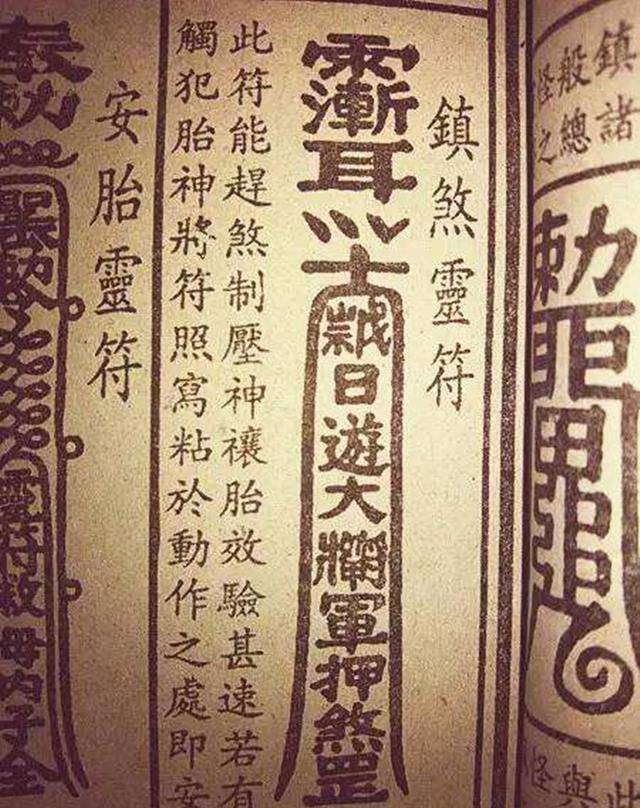 鎮諸
般總
怪之
勅
鎮煞靈符
日遊大將軍押煞罡
此符能趕煞制壓神禳胎效驗甚速若有
觸犯胎神將符照寫粘於動作之處即安
安胎靈符
奉勅
靈符救母內子全